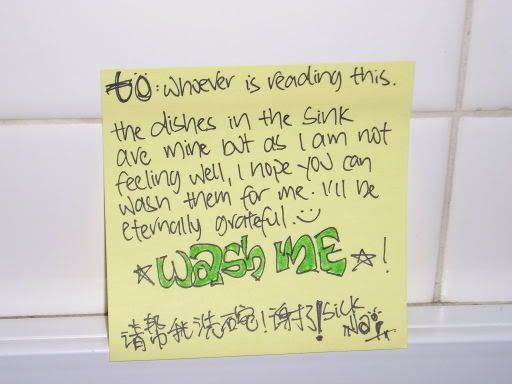 to: whoever is reading this.
the dishes in the sink
are mine but as I am not
feeling well, I hope you can
wash them for me. I'll be
eternally grateful.
wash me!
请帮我洗碗!谢了! sick